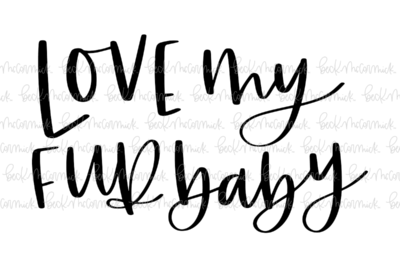 LOVE my
FUR baby